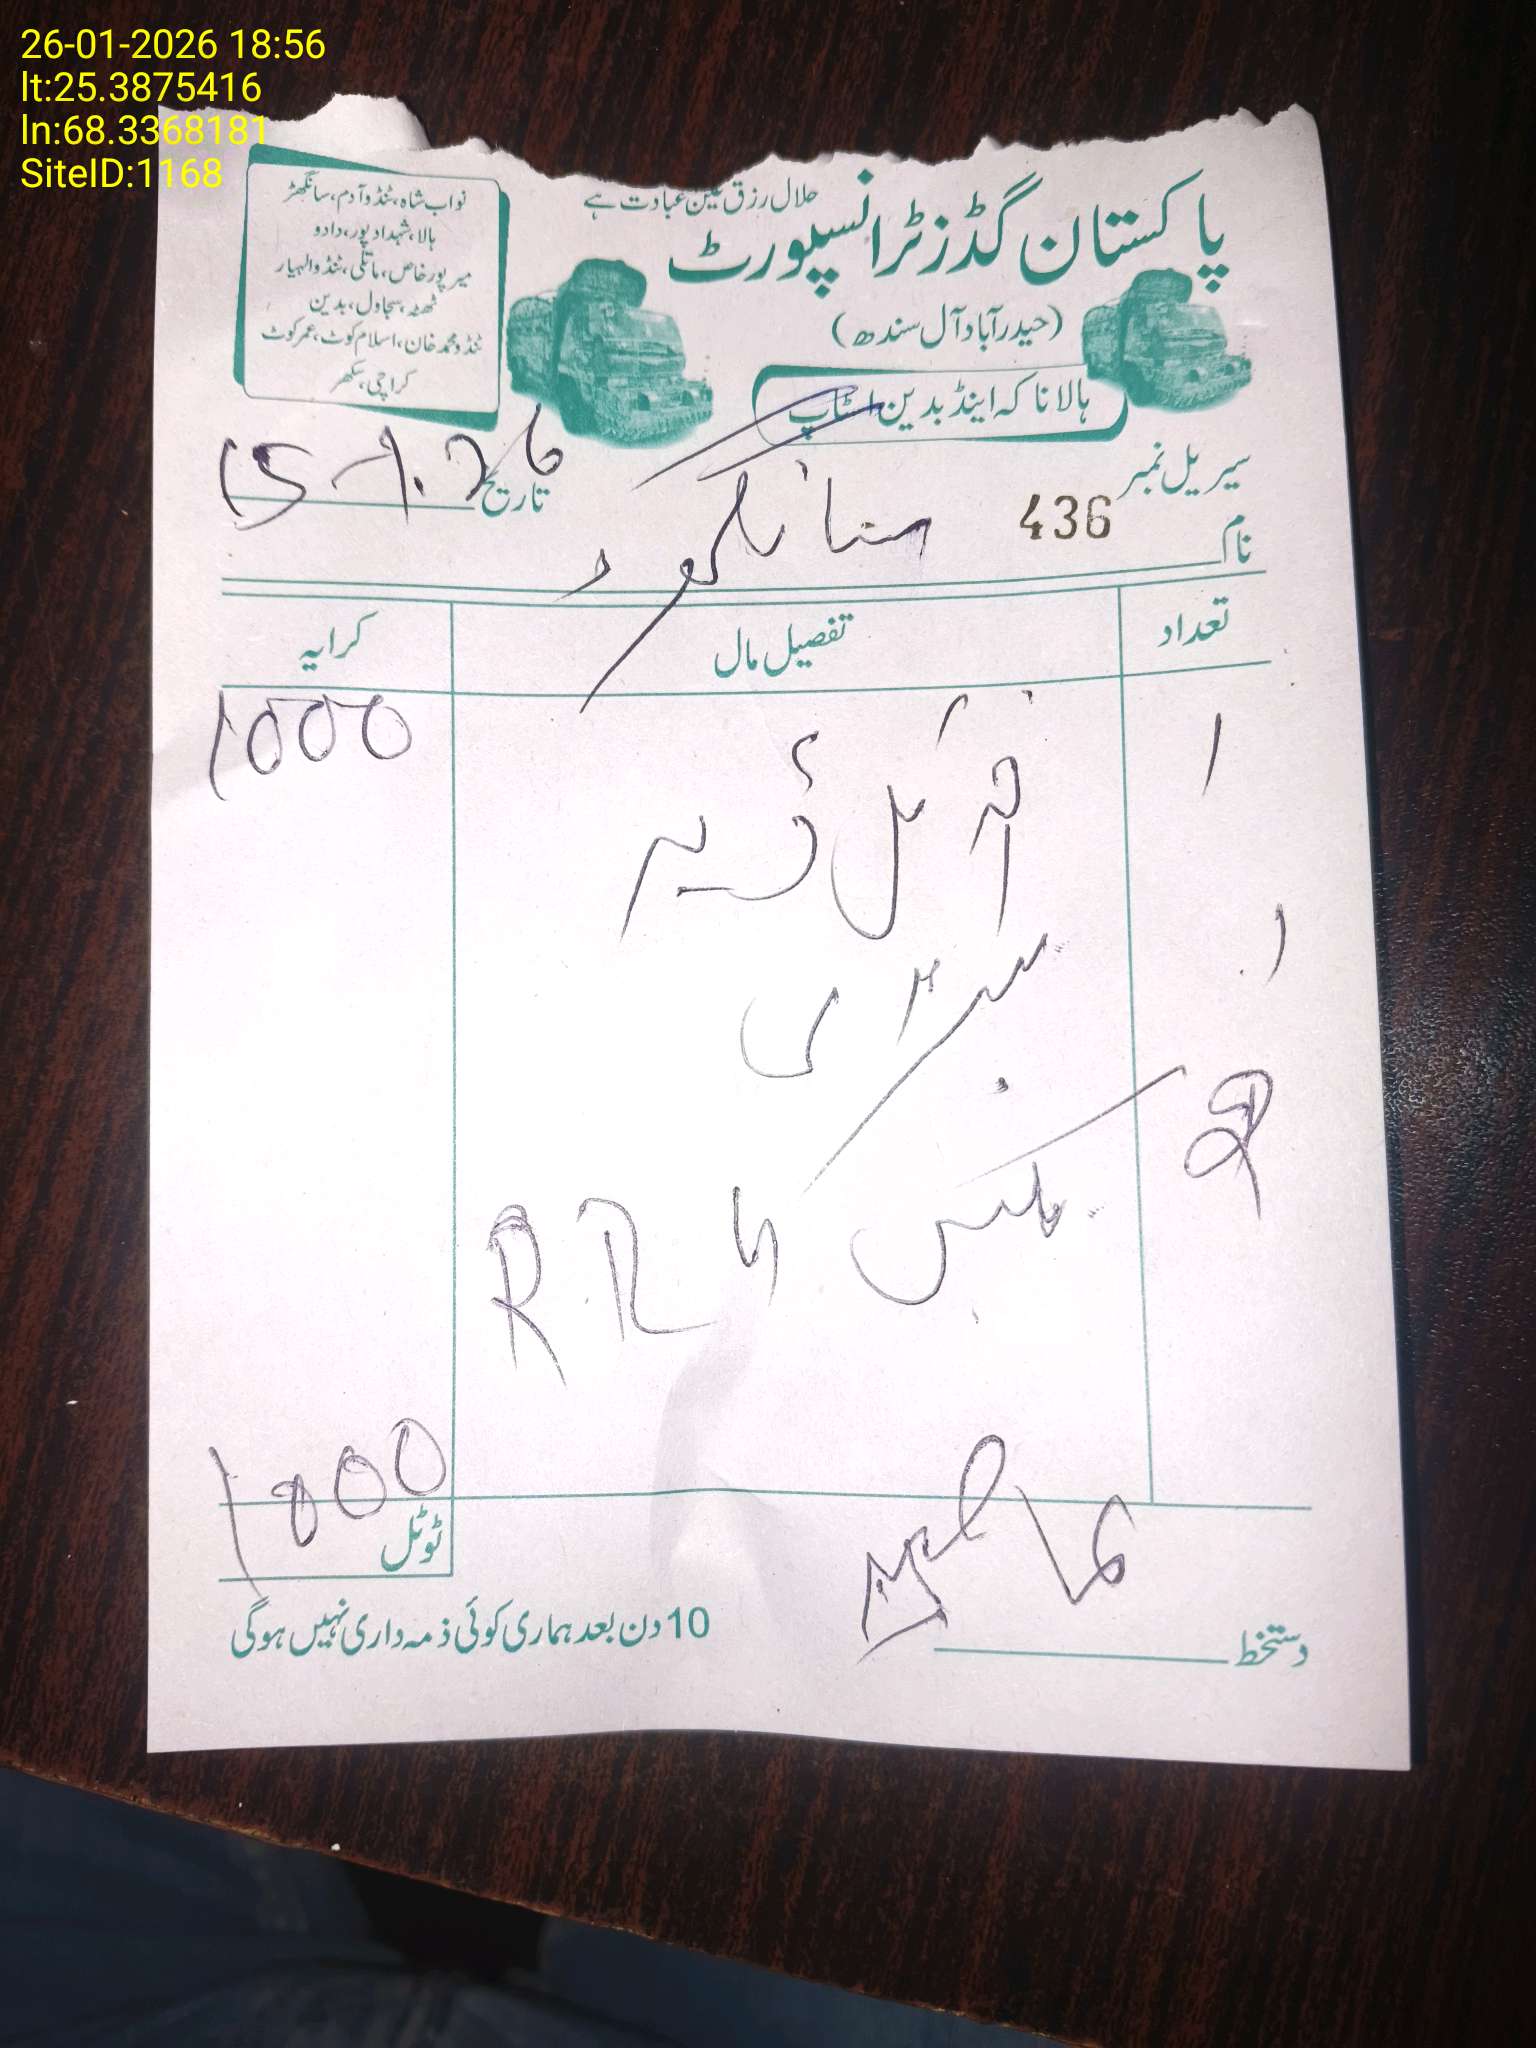 26-01-2026 18:56
lt:25.3875416
ln:68.3368181
SiteID:1168
حلال رزق عین عبادت ہے
پاکستان گڈز ٹرانسپورٹ
(حیدرآباد آل سندھ)
ہالا ناکہ اینڈ بدین اسٹاپ
نواب شاہ، ٹنڈوآدم، سانگھڑ
ہالا، شہداد پور، دادو
میرپورخاص، ماتلی، ٹنڈوالہیار
ٹھٹھہ، سجاول، بدین
ٹنڈو محمد خان، اسلام کوٹ، عمرکوٹ
کراچی، سکھر
سیریل نمبر 436
تاریخ 15-1-26
نام
تعداد تفصیل مال کرایہ
1 1000
1 بیٹری
RRU
ٹوٹل 1000
دستخط
10 دن بعد ہماری کوئی ذمہ داری نہیں ہوگی